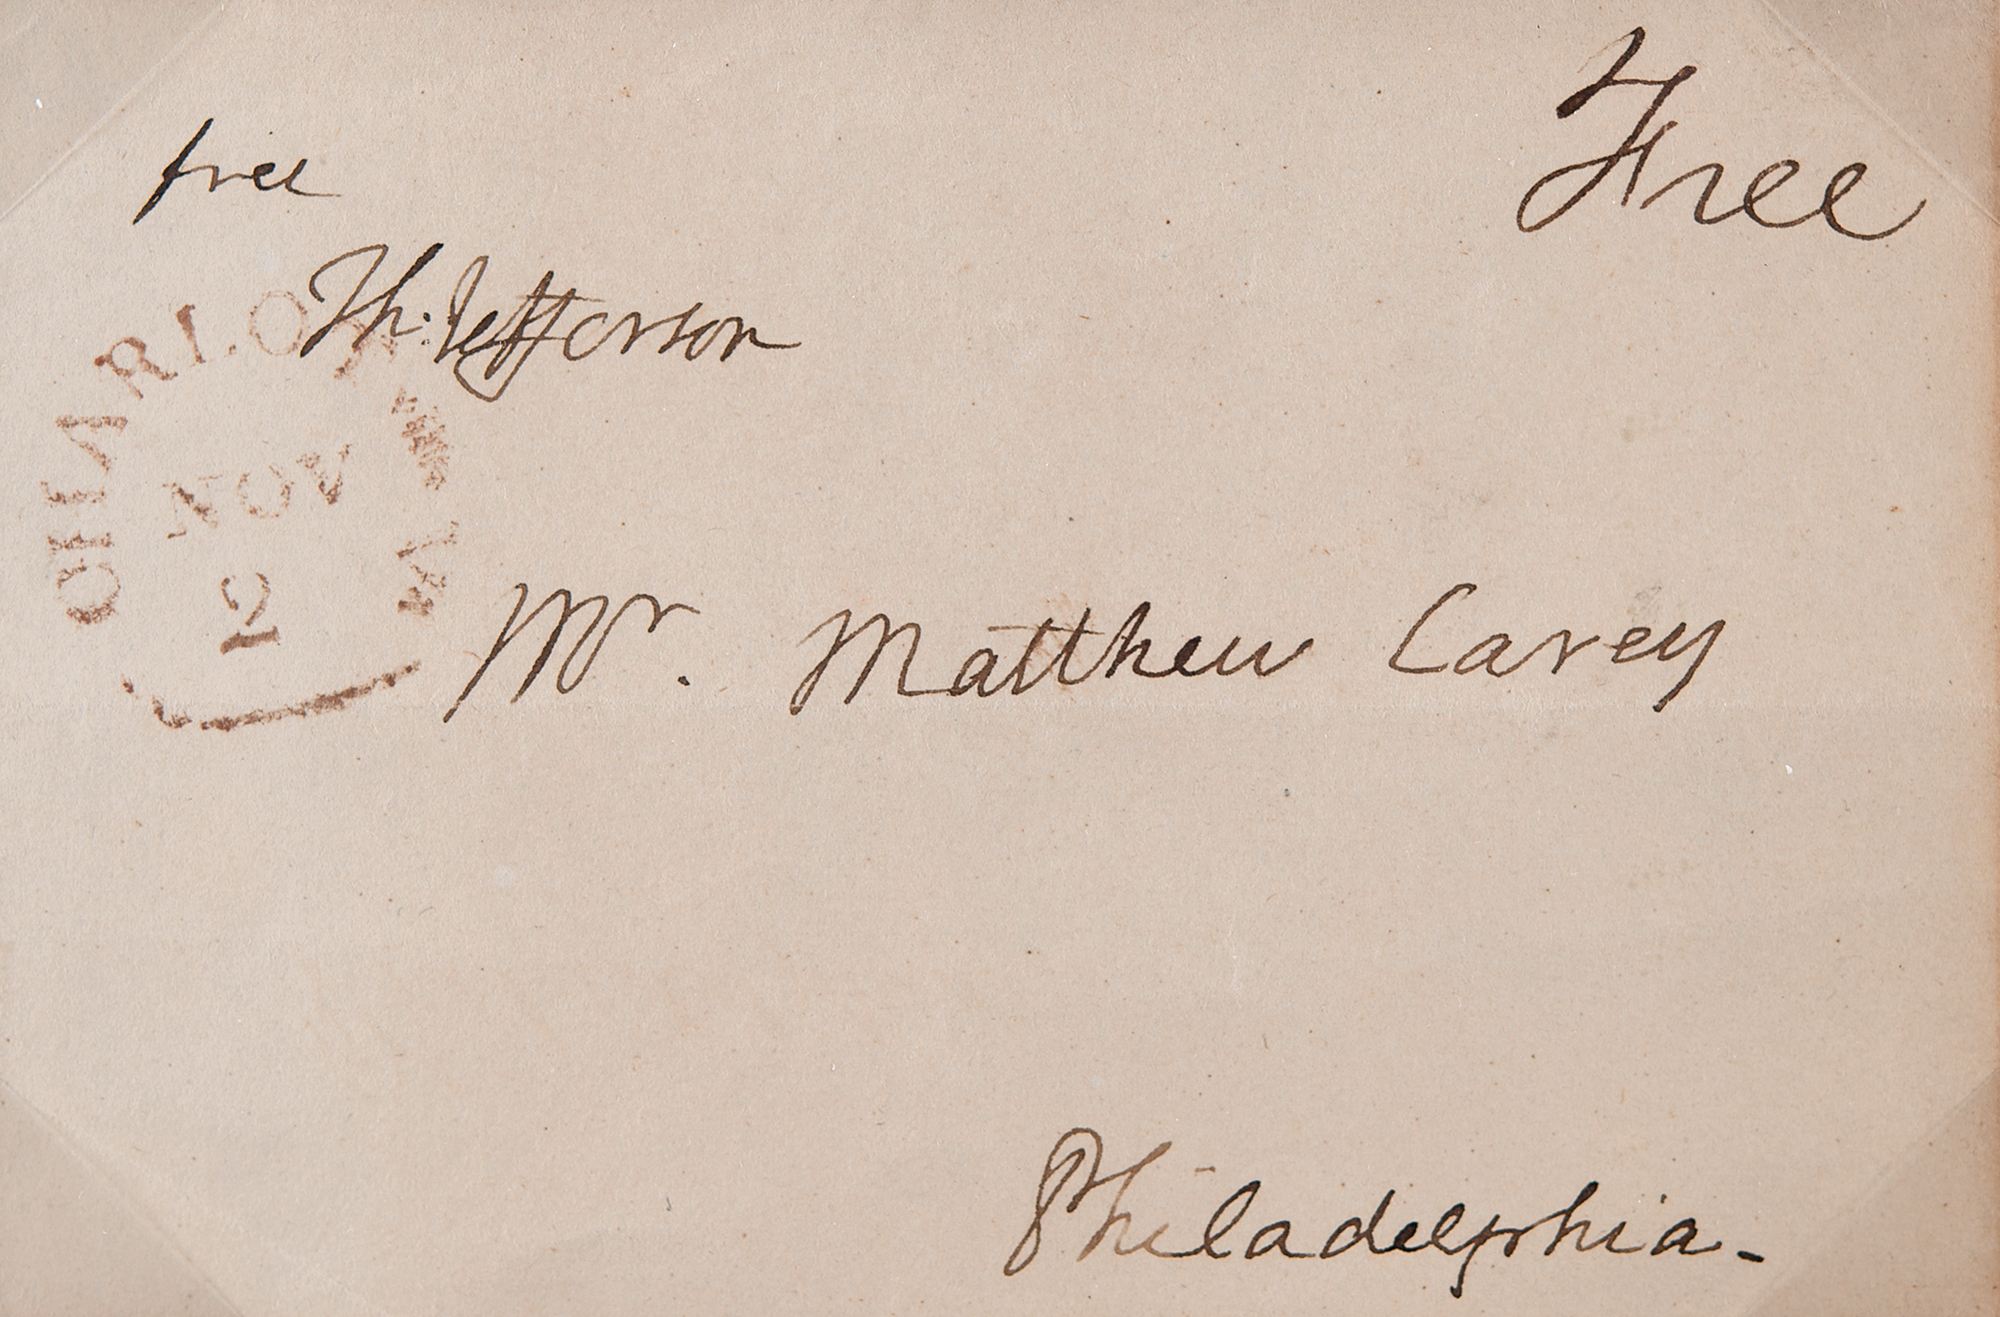 Free
free
Th: Jefferson
CHARLO
NOV
12
VA
Mr. Matthew Carey
Philadelphia-